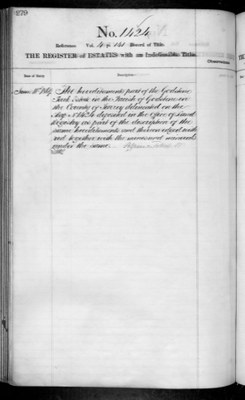 279
No. 1424
Reference Vol. 4 p. 141 Record of Title.
THE REGISTER OF ESTATES with an Indefeasible Title.
Date of Entry.
Description.
Observations
The hereditaments part of the Godstone
Park Estate in the Parish of Godstone in
the County of Surrey delineated on the
Map deposited in the Office of Land
Registry as part of the description of the
same hereditaments and thereon edged with
red together with the mines and minerals
under the same.